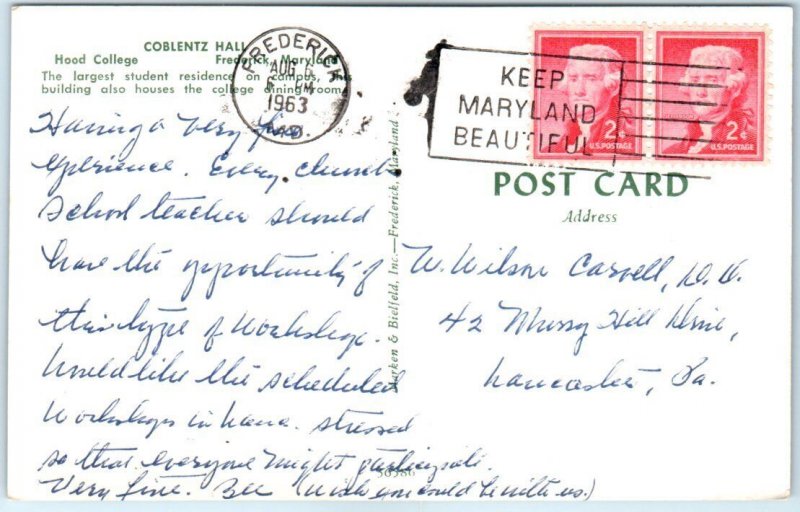 COBLENTZ HALL
Hood College Frederick, Maryland
The largest student residence on campus, this
building also houses the college dining room.
FREDERICK
AUG 6
PM
1963
MD.
KEEP
MARYLAND
BEAUTIFUL
2¢ 2¢
U.S. POSTAGE U.S. POSTAGE
POST CARD
Address
Having a very fine
experience. Every church
school teacher should
have the opportunity of
this type of workshop.
Would like the scheduled
workshops in stressed
so that everyone might participate.
Very fine. Bee (wish you could be with us.)
Marken & Bielfeld, Inc.—Frederick, Maryland
W. Wilson Carvell, D.D.
42 Mussy Hill Drive,
Lancaster, Pa.
56586